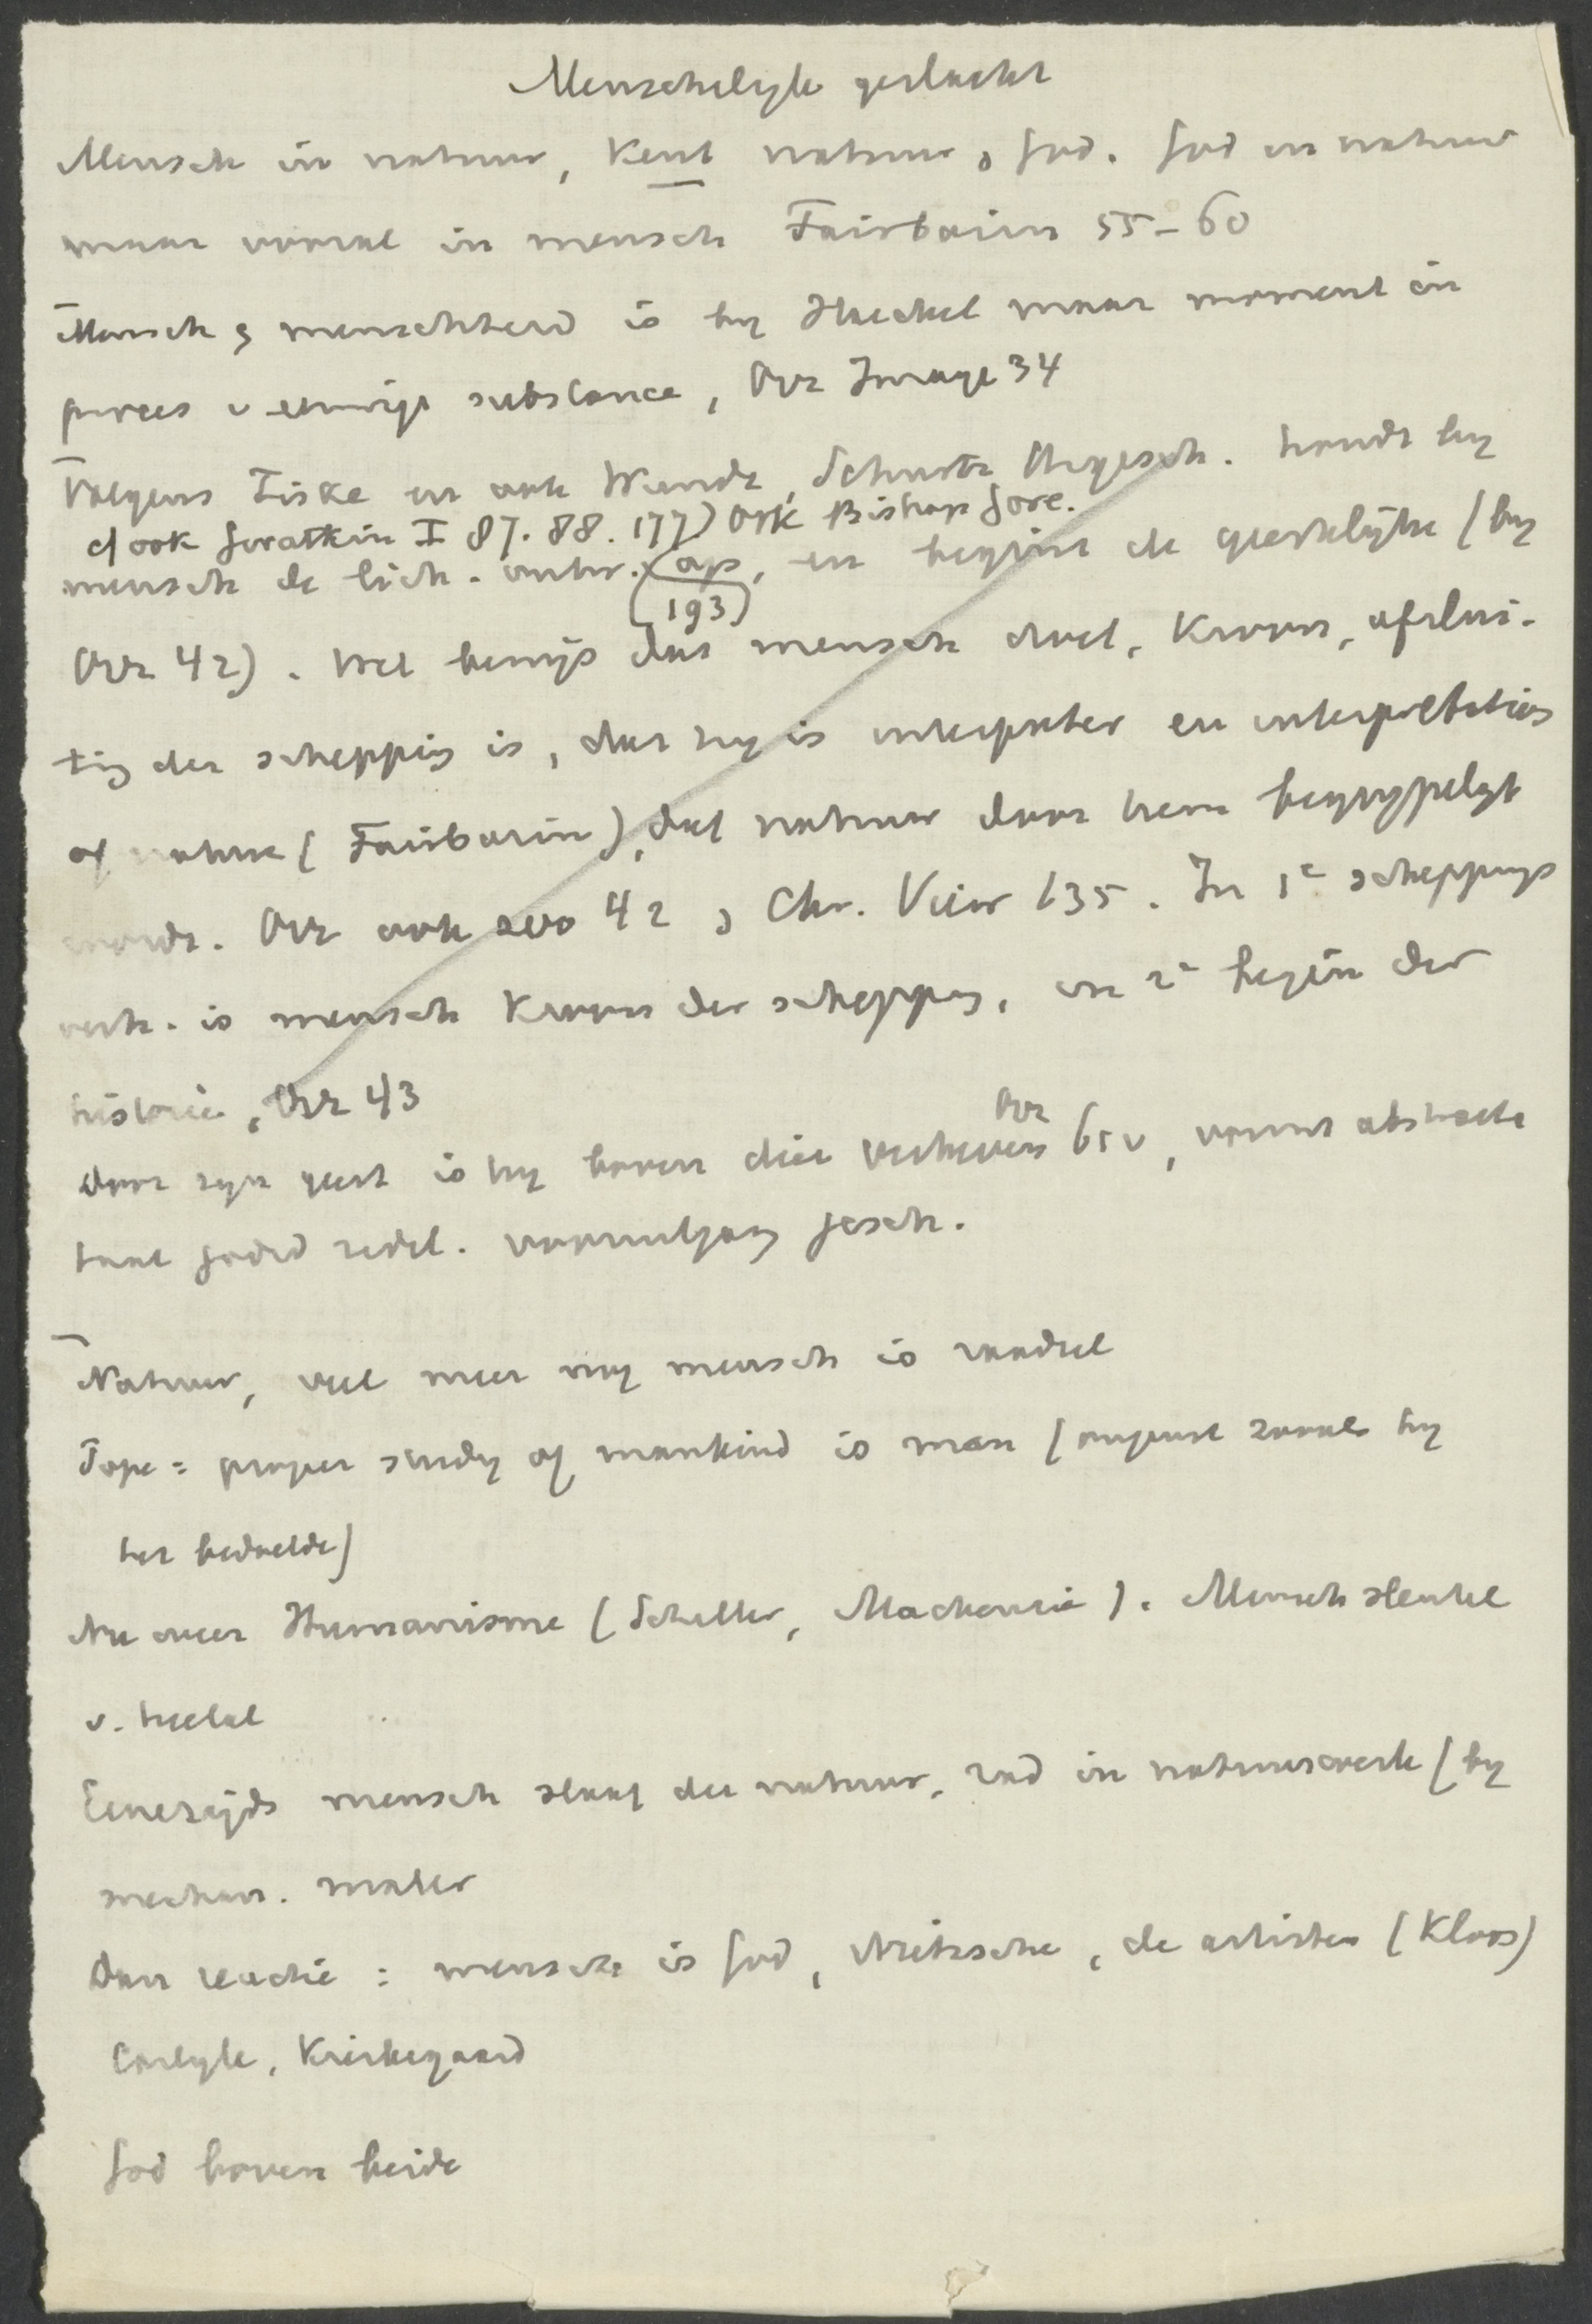 Menschelijk geslacht
Mensch in natuur, kent natuur, God. God in natuur
maar vooral in mensch Fairbairn 55-60
Mensch & menschheid is bij Haeckel maar moment in
proces v eeuwige substance, Orr Image 34
Volgens Fiske en ook Wundt, Schurtz Urgesch. houdt bij
cf ook Gwatkin I 87. 88. 177) Ook Bishop Gore.
mensch de lich. ontw. op, en begint de geestelijke (bij
(193)
Orr 42). Het bewijs dat mensch doel, kroon, afslui-
ting der schepping is, dat hij is interpreter en interpretation
of nature (Fairbairn), dat natuur door hem begrijpelijk
wordt. Orr ook zoo 42, Chr. View 135. In 1e scheppings
verh. is mensch kroon der schepping, in 2e begin der
historie, Orr 43
Orr
Door zijn geest is hij boven dier verheven 65v, vormt abstracte
taal godsd zedel. vooruitgang gesch.
Natuur, veel meer nog mensch is raadsel
Pope = proper study of mankind is man (ongeveer zooals hij
het bedoelde)
Nu weer Humanisme (Schiller, Mackenzie). Mensch sleutel
v. heelal
Eenerzijds mensch slaaf der natuur, rad in natuurwerk (bij
mechan. mater
Dan reactie: mensch is God, Nietzsche, de artisten (Kloos)
Carlyle, Kierkegaard
God boven beide